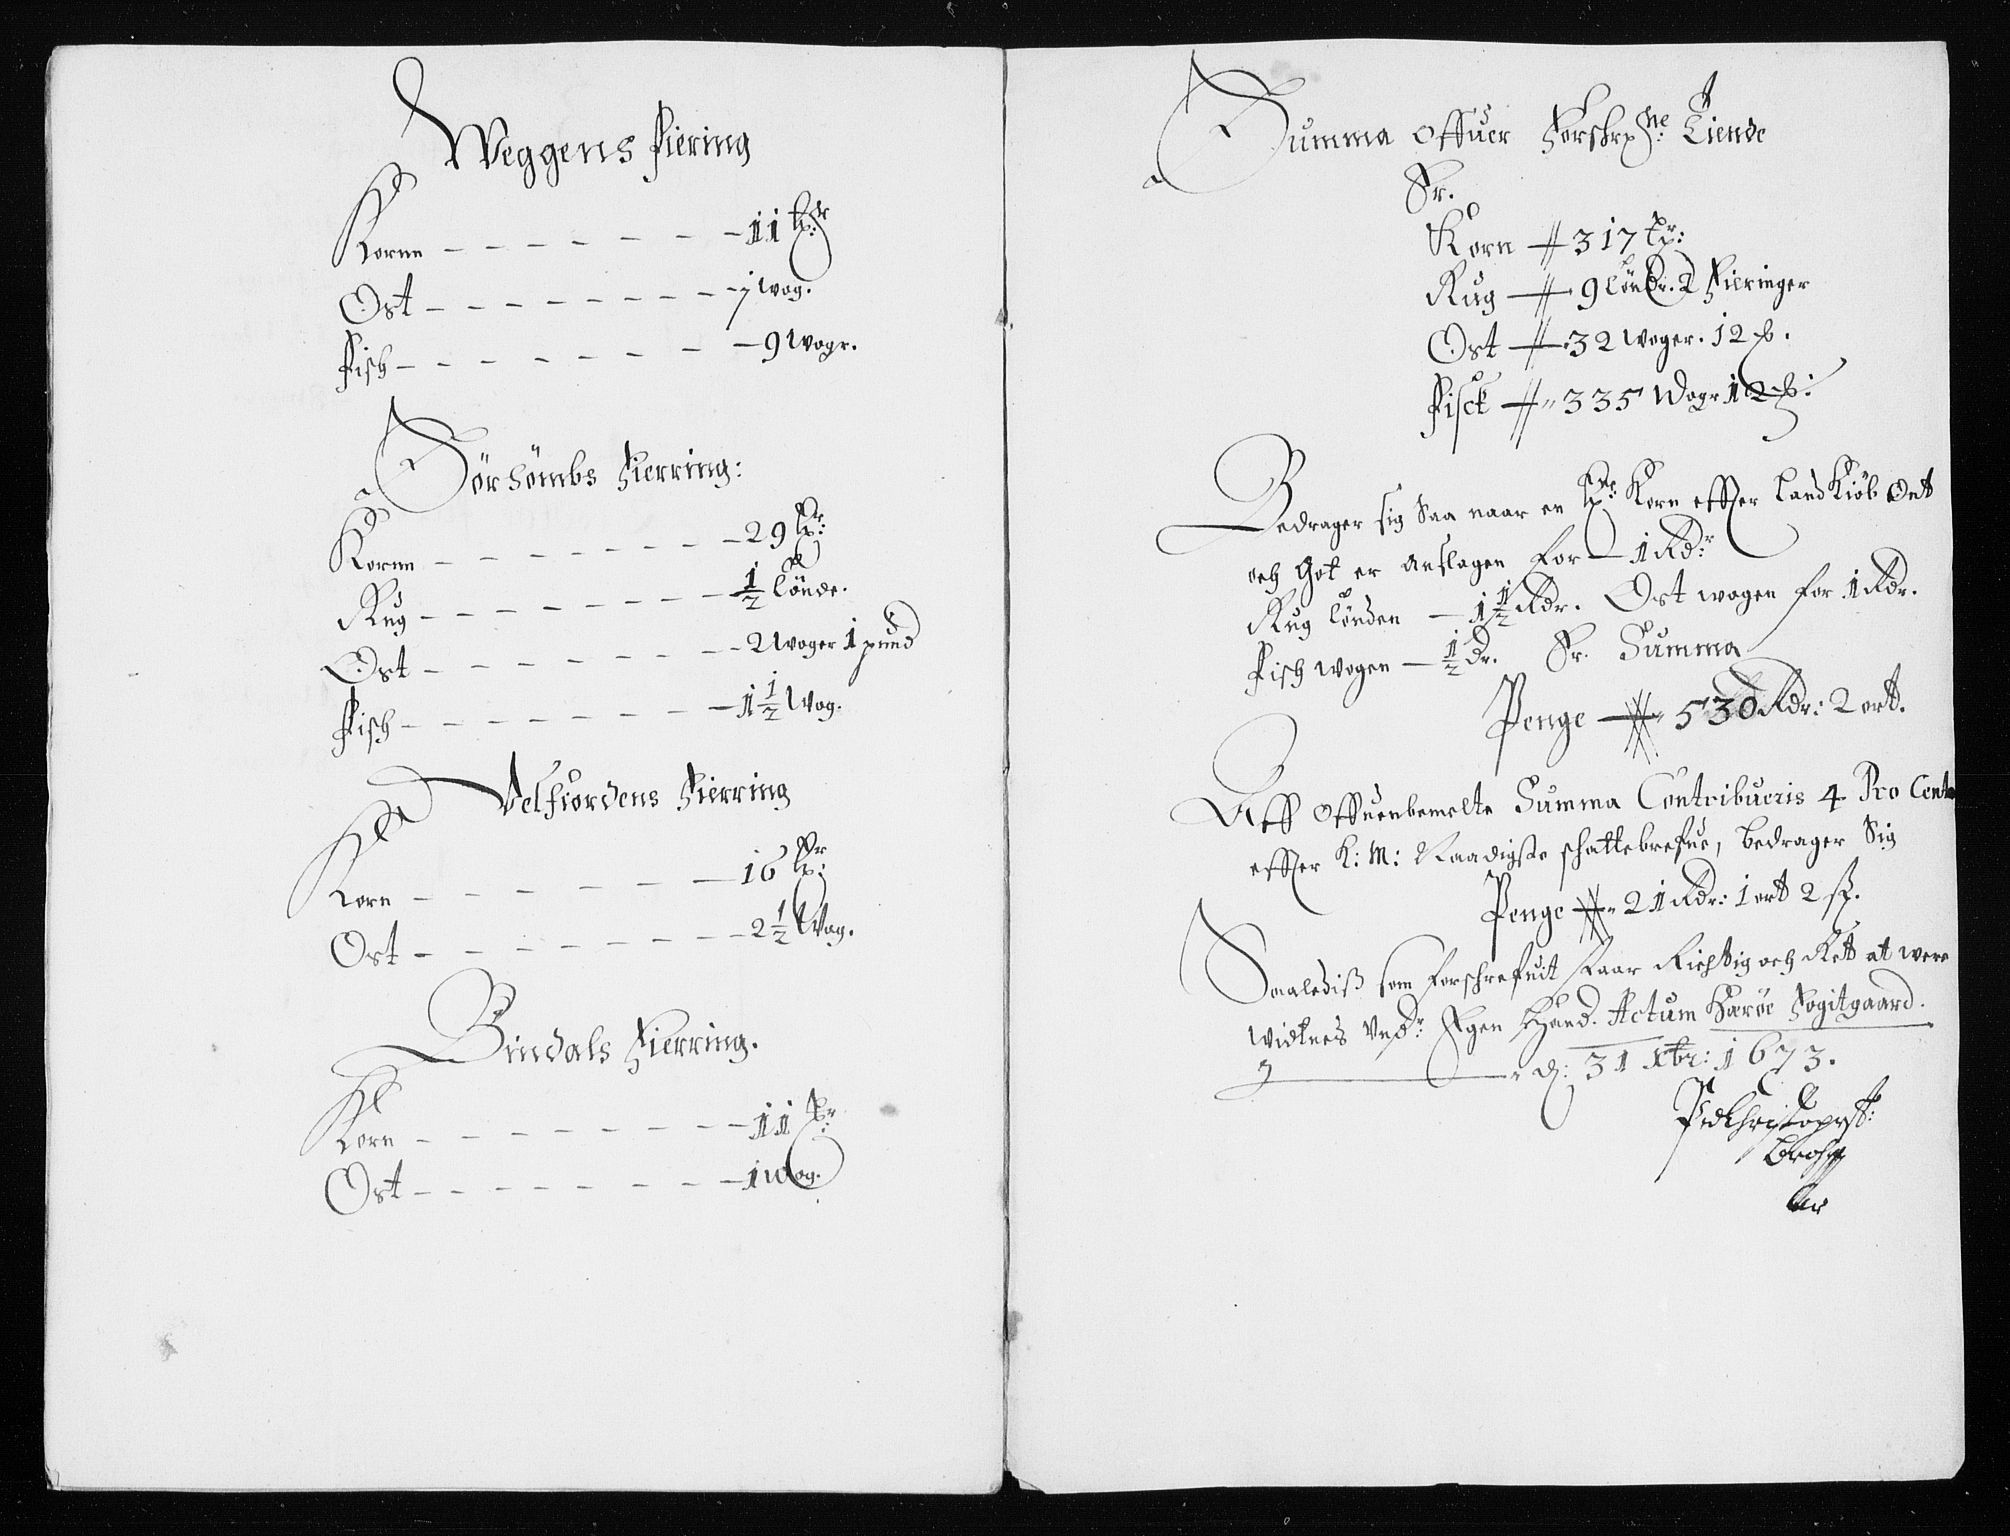 Weggens fiering
Kornn - - - - - - - 11 tøn:r
Ost - - - - - - - - 1 wog.
fisch - - - - - - - 9 wogr.
Sørsømbs Fierring:
Kornn - - - - - - - 29 tr:
Rug - - - - - - - - ½ tönde.
Ost - - - - - - - - 2 woger 1 pund
fisch - - - - - - - 1½ wog.
Velfiordens Fierring
Korn - - - - - - - 16 tr:
Ost - - - - - - - - 2½ Wog.
Bindals Fierring.
Korn - - - - - - - 11 tr:
Ost - - - - - - - - 1 wog.
Summa offuer forskrefne: Tiende
Er.
Korn 317 tr:
Rug 9 töndr. 2 Fieringer
Ost 32 woger. 12 ℔.
Fisck 335 Wogr 12 ℔:
Bedrager sig saa naar en tøe Korn effter Landkiöb ont
och Got er anslagen for 1 Rdr
Rug tönden 1½ Rdr. Ost wogen for 1 Rdr.
fisch wogen ½ Dr. Er. Summa
Penge 530 Rdr: 2 ort.
Aff offuenbemelte Summa Contribueris 4 Pro Cento
effter K: M: Naadigste schattebrefue, bedrager sig
Penge 21 Rdr: 1 ort 2 sz.
Saalediß som forschrefuit staar Richtig och Rett at were
widtnes Undr Egen Haand. Actum Horøe Fogitgaard.
d: 31 Xbr: 1673.